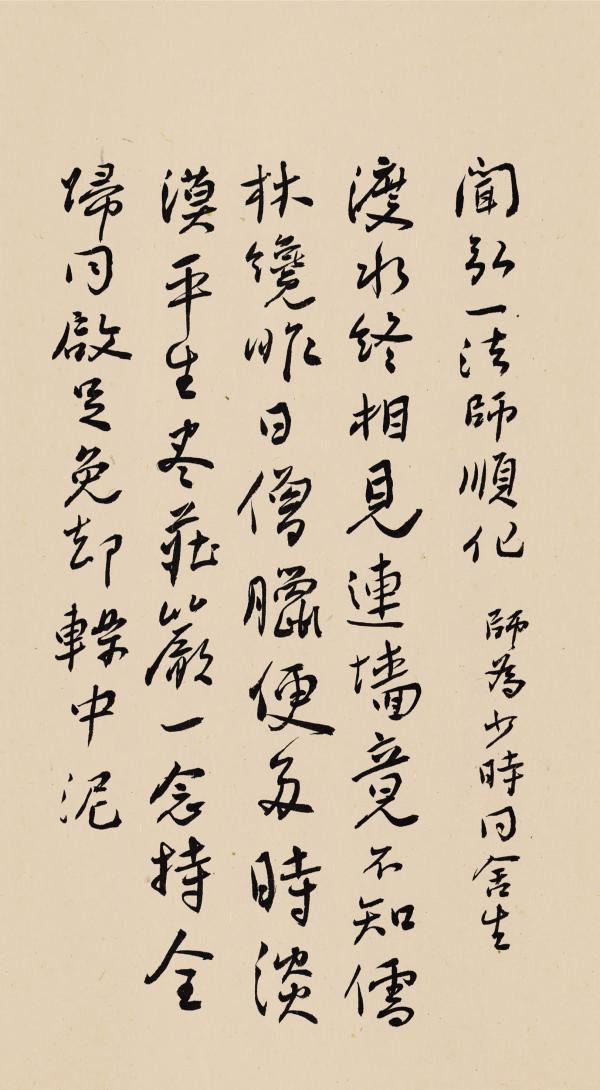 聞弘一法師順化 師為少時同舍生
渡水終相見連墻竟不知儒
林纔昨日僧臘便多時淡
漠平生盡莊嚴一念持全
歸同啟足免却中泥